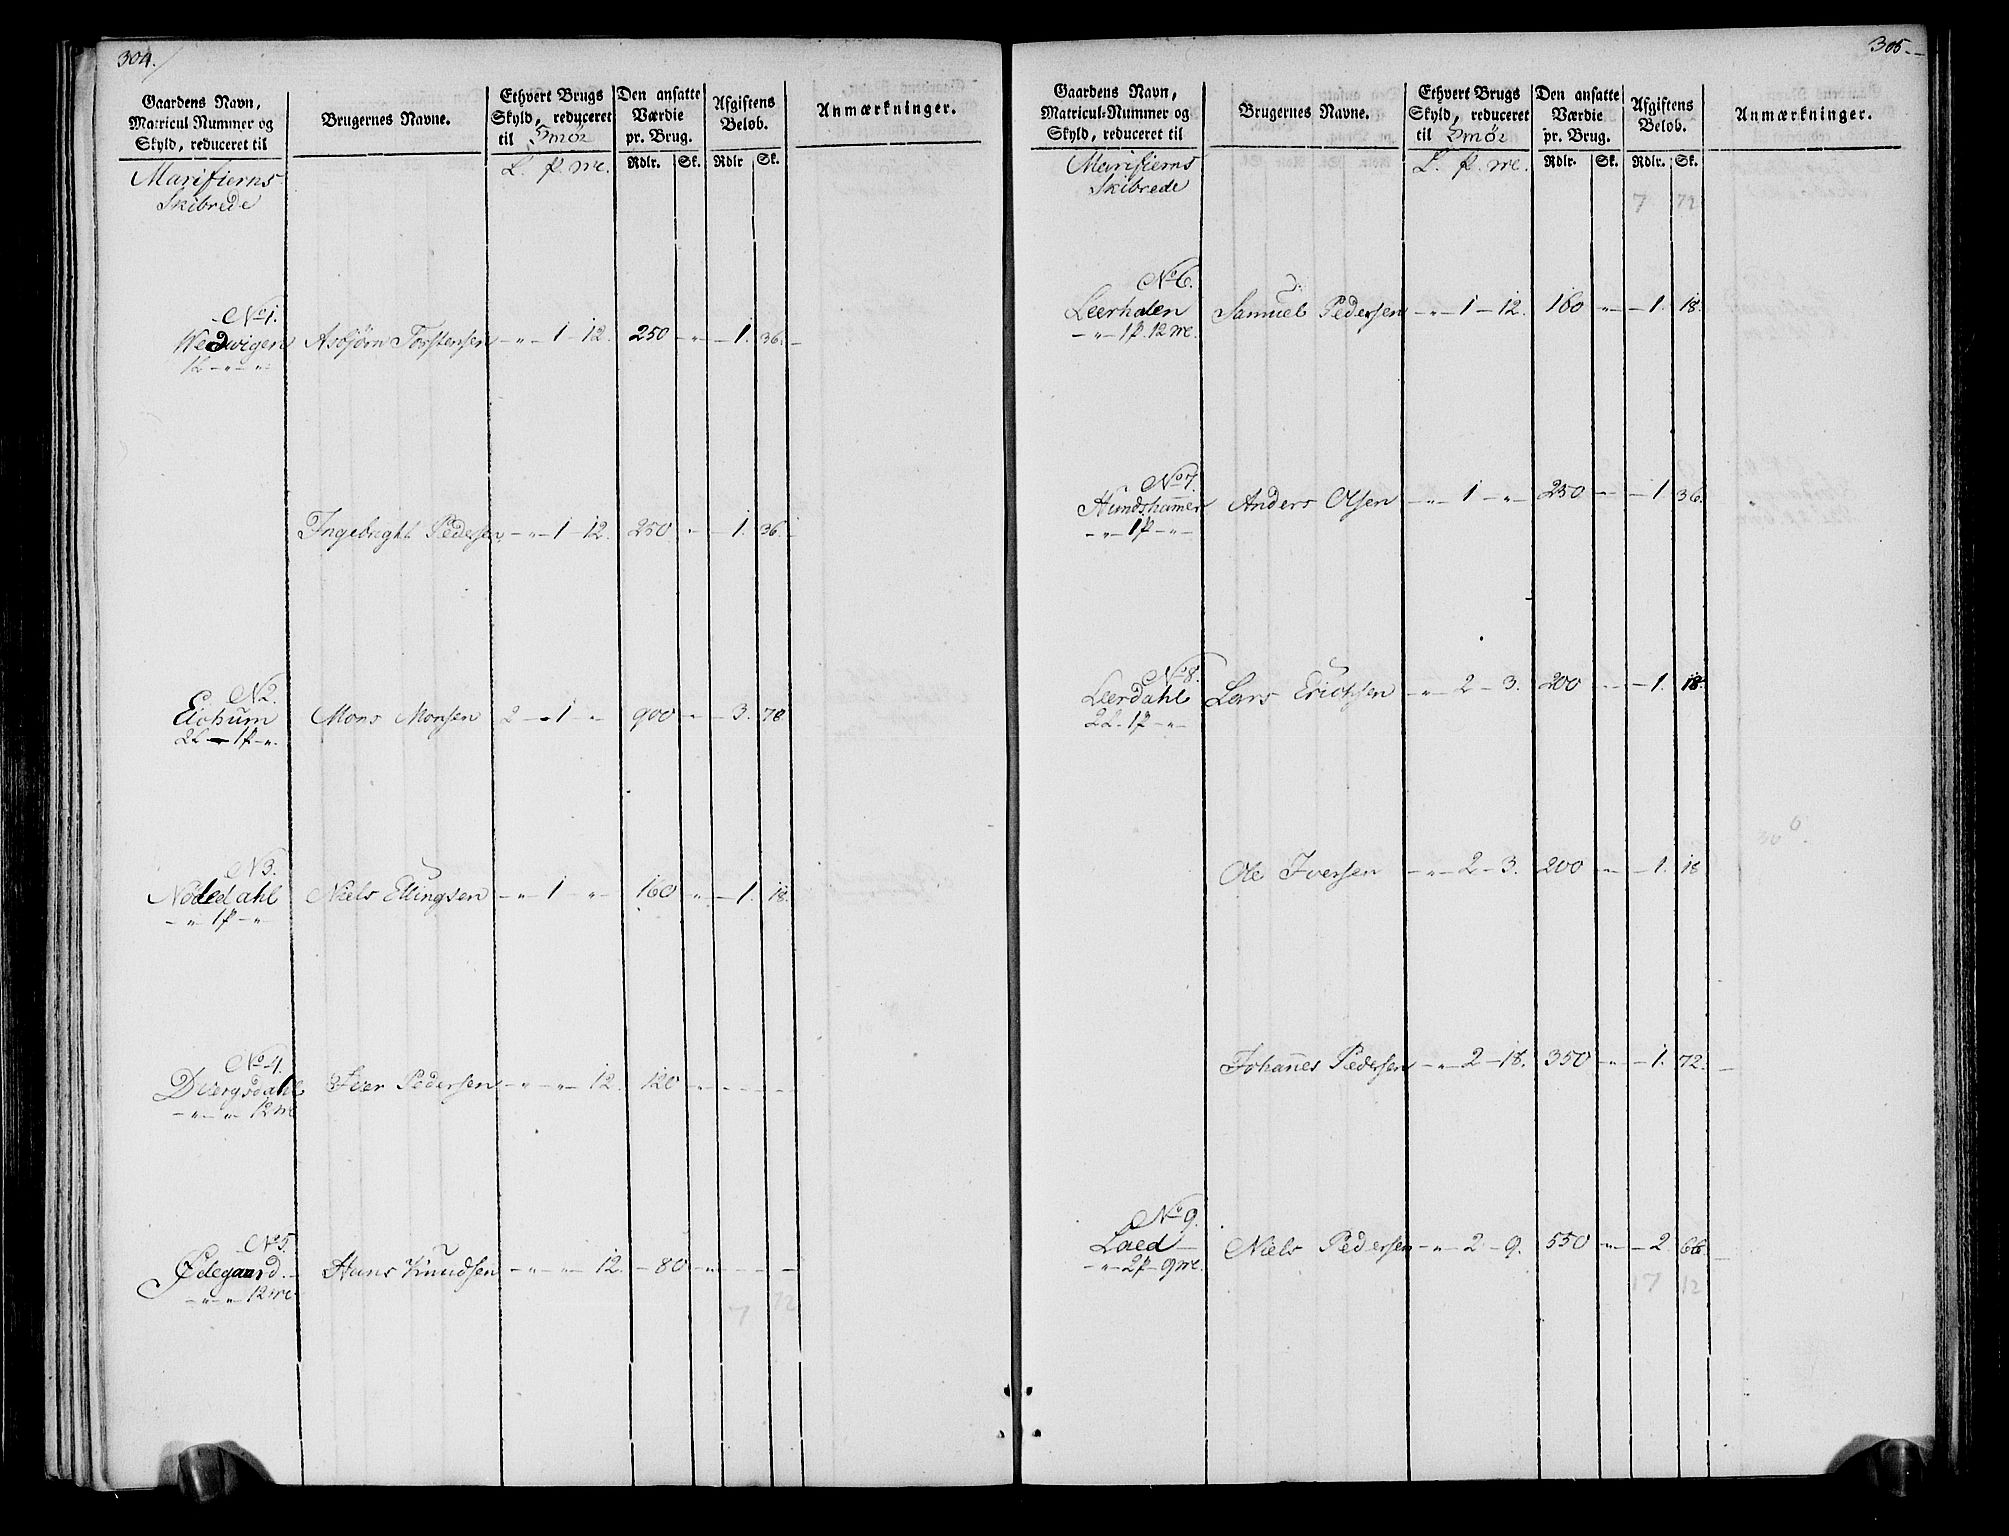 304.
Gaardens Navn, Matricul Nummer og Skyld, reduceret til | Brugernes Navne. | Ethvert Brugs Skyld, reduceret til Smör | Den ansatte Værdie pr. Brug. | Afgiftens Beløb. | Anmærkninger.
L. p. me. | Rdlr. | Sk. | Rdlr | Sk.
Marifierns
Skibrede
No 1.
Wedwigen Asbjörn Torstensen - " - 1 - 12. 250 - " - 1. 36. -
1 L - " - "
Ingebright Pedersen - " - 1 - 12. 250. " - 1. 36.
No 2.
Eichum Mons Monsen 2 - 1 - " - 900 - " - 3. 78
2 L - 1 p - ".
No 3.
Nödedahl Niels Ellingsen - " - 1 - " - 160 - " - 1. 18.
- " - 1 p - " -
No 4.
Dvergsdahl Iver Pedersen - " - " - 12. 120 - " - - -
- " - " - 12 me
No 5.
Ödegaard. Hans Knudsen - " - " - 12. - 80 - " - - -
- " - " - 12 me.
7 72
305.
Gaardens Navn, Matricul-Nummer og Skyld, reduceret til | Brugernes Navne. | Ethvert Brugs Skyld, reduceret til Smör | Den ansatte Værdie pr. Brug. | Afgiftens Beløb. | Anmærkninger.
L. p. me. | Rdlr. | Sk. | Rdlr. | Sk.
Marifierns
Skibrede
7 72
No 6.
Leerholen Samuel Pedersen - " - 1 - 12. 160 - " - 1. 18.
- " - 1 p. 12 me.
No 7.
Hundshammer Anders Olsen - " - 1 - " - 250 - " - 1. 36.
- " - 1 p - " -
No 8.
Leerdahl Lars Erichsen - " - 2 - 3. 200 - " - 1. 18.
2 L - 1 p - " -
Ole Iversen - " - 2 - 3. 200 - " - 1. 18
Johannes Pedersen - " - 2 - 18. 350 - " - 1. 72. -
No 9.
Loed Niels Pedersen - " - 2 - 9. 550 - " - 2 66. -
- " - 2 p - 9 me.
17 12